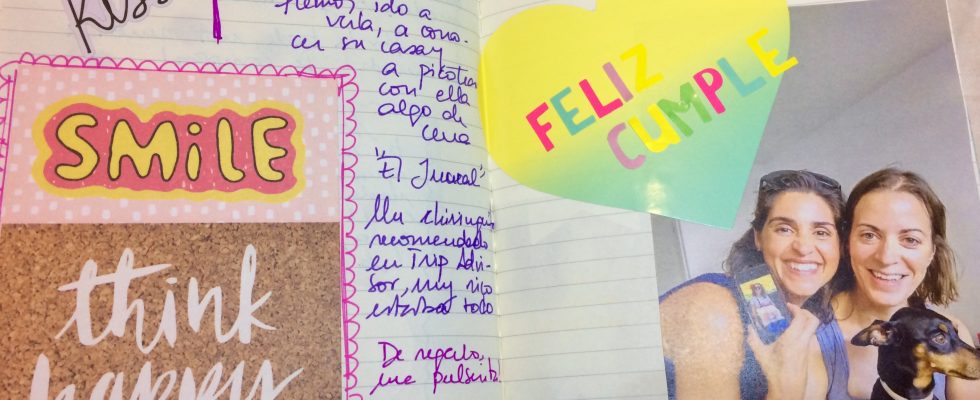 KISS
Hemos ido a
verla, a cono-
cer su casa y
a picotear
con ella
algo de
cena
"El Juncal"
Un chiringuito
recomendado
en Trip Advi-
sor, muy rico
estaba todo
De regalo,
una pulserita
SMiLE
think
happy
FELIZ
CUMPLE